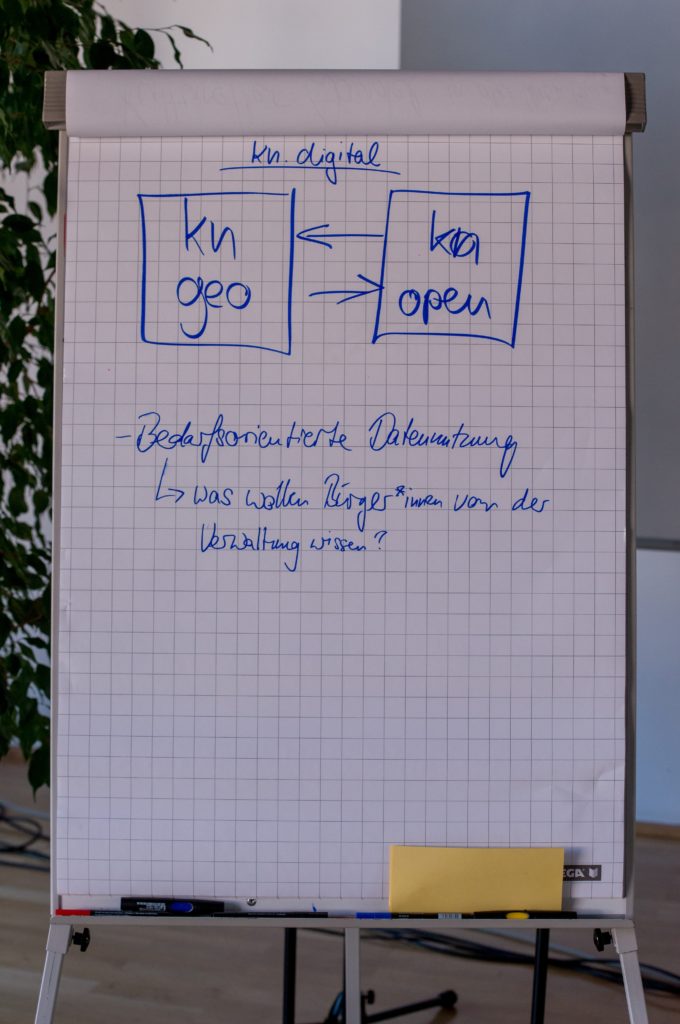 kn.digital
kn
geo
kn
open
- Bedarfsorientierte Datennutzung
↳ was wollen Bürger*innen von der
Verwaltung wissen?
EGA